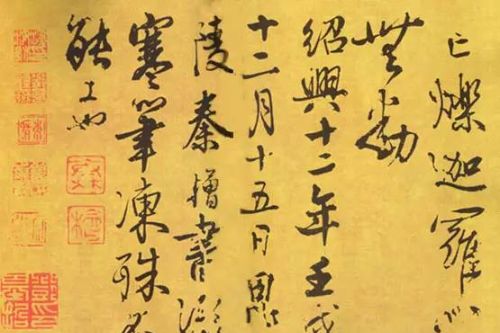 亡爍迦羅心
無動
紹興十二年壬戌
十二月十五日
陵秦檜書
寒筆凍殊
能工也